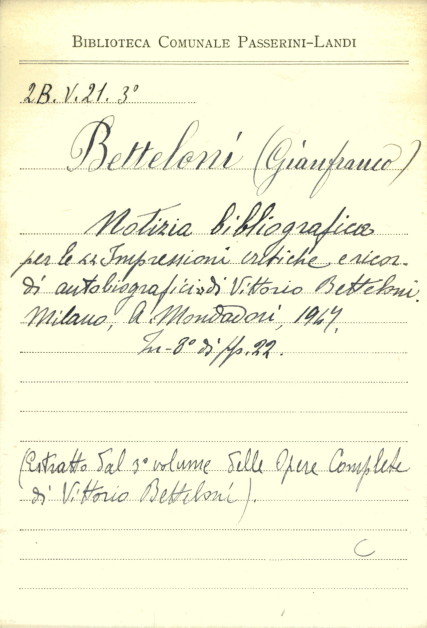 BIBLIOTECA COMUNALE PASSERINI-LANDI
2B. V. 21. 3°
Betteloni (Gianfranco)
Notizia bibliografica
per le «Impressioni critiche e ricor-
di autobiografici» di Vittorio Betteloni.
Milano, A. Mondadori, 1947.
In-8° di pp. 22.
(Estratto dal 3° volume delle Opere Complete
di Vittorio Betteloni).
C